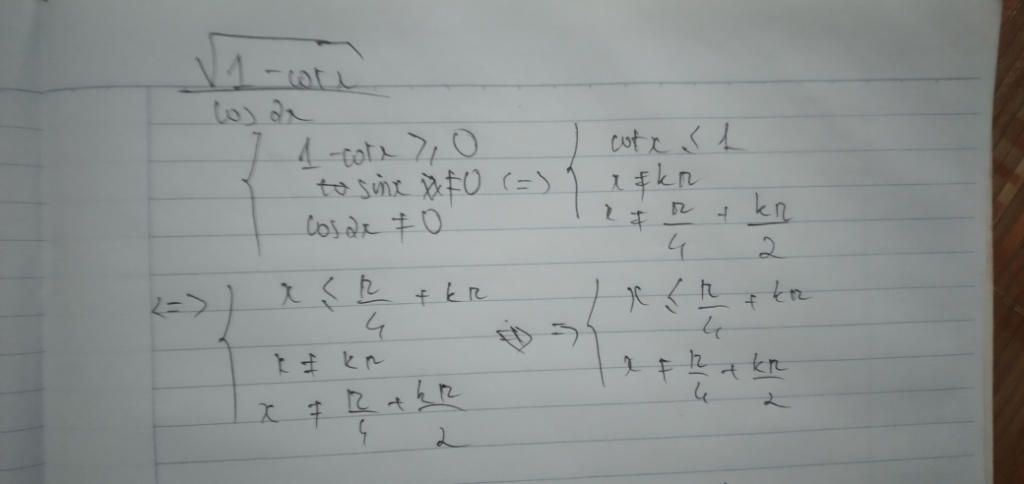 √1 - cotx
cos 2x
1 - cotx ≥ 0
sinx ≠ 0 <=>
cos2x ≠ 0
cotx ≤ 1
x ≠ kπ
x ≠ π/4 + kπ/2
<=> x ≤ π/4 + kπ
x ≠ kπ
x ≠ π/4 + kπ/2
=> x ≤ π/4 + kπ
x ≠ π/4 + kπ/2